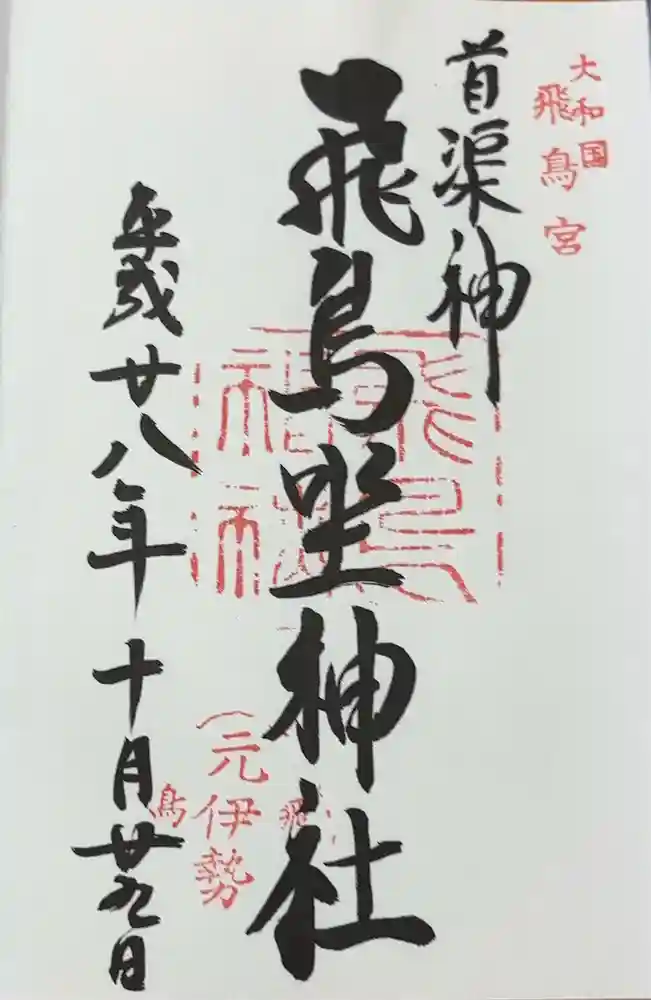 大和国
飛鳥宮
首渠神
飛鳥坐神社
飛鳥
神社
(元伊勢
飛
鳥
平成廿八年十月廿九日